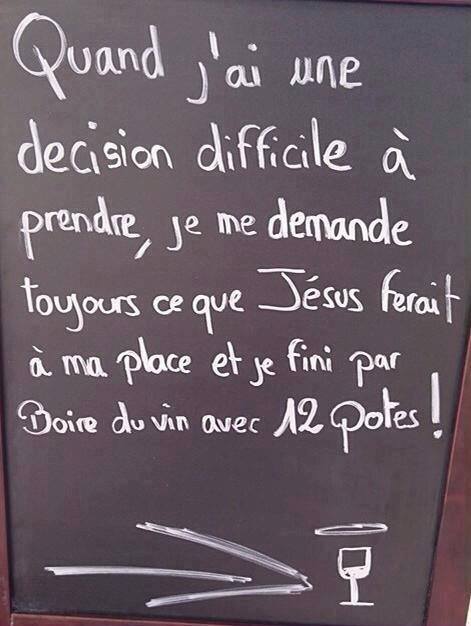 Quand j'ai une
decision difficile à
prendre, je me demande
toujours ce que Jésus ferait
à ma place et je fini par
Boire du vin avec 12 potes!